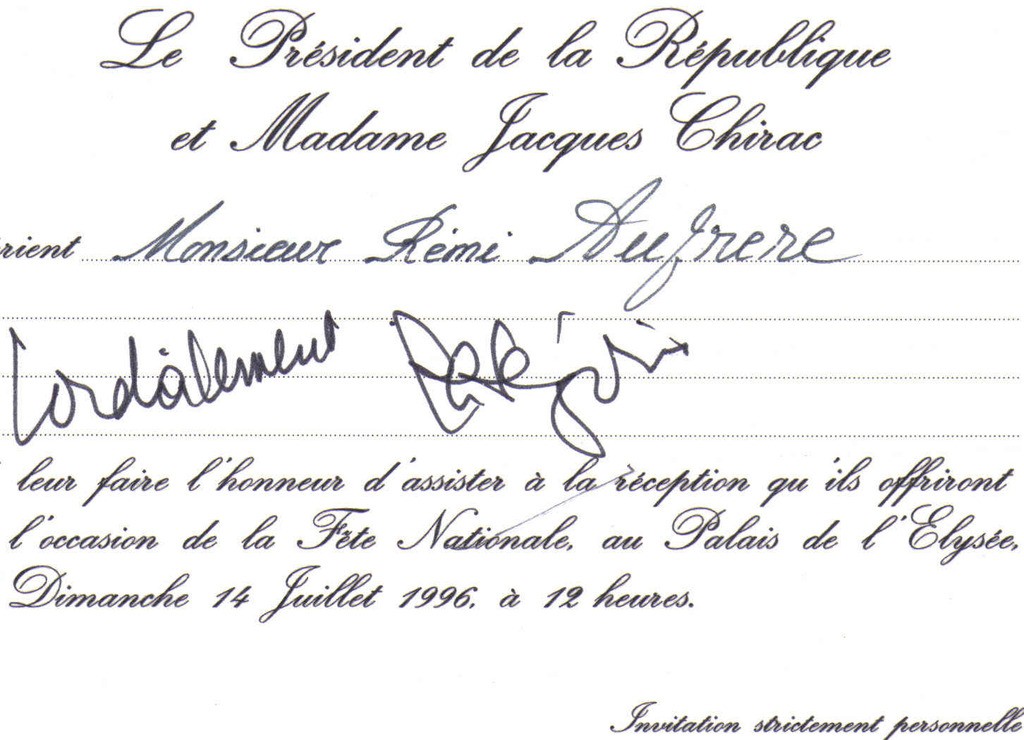 Le Président de la République
et Madame Jacques Chirac
rient Monsieur Rémi Aufrere
Cordialement
leur faire l'honneur d'assister à la réception qu'ils offriront
l'occasion de la Fête Nationale, au Palais de l'Elysée,
Dimanche 14 Juillet 1996, à 12 heures.
Invitation strictement personnelle